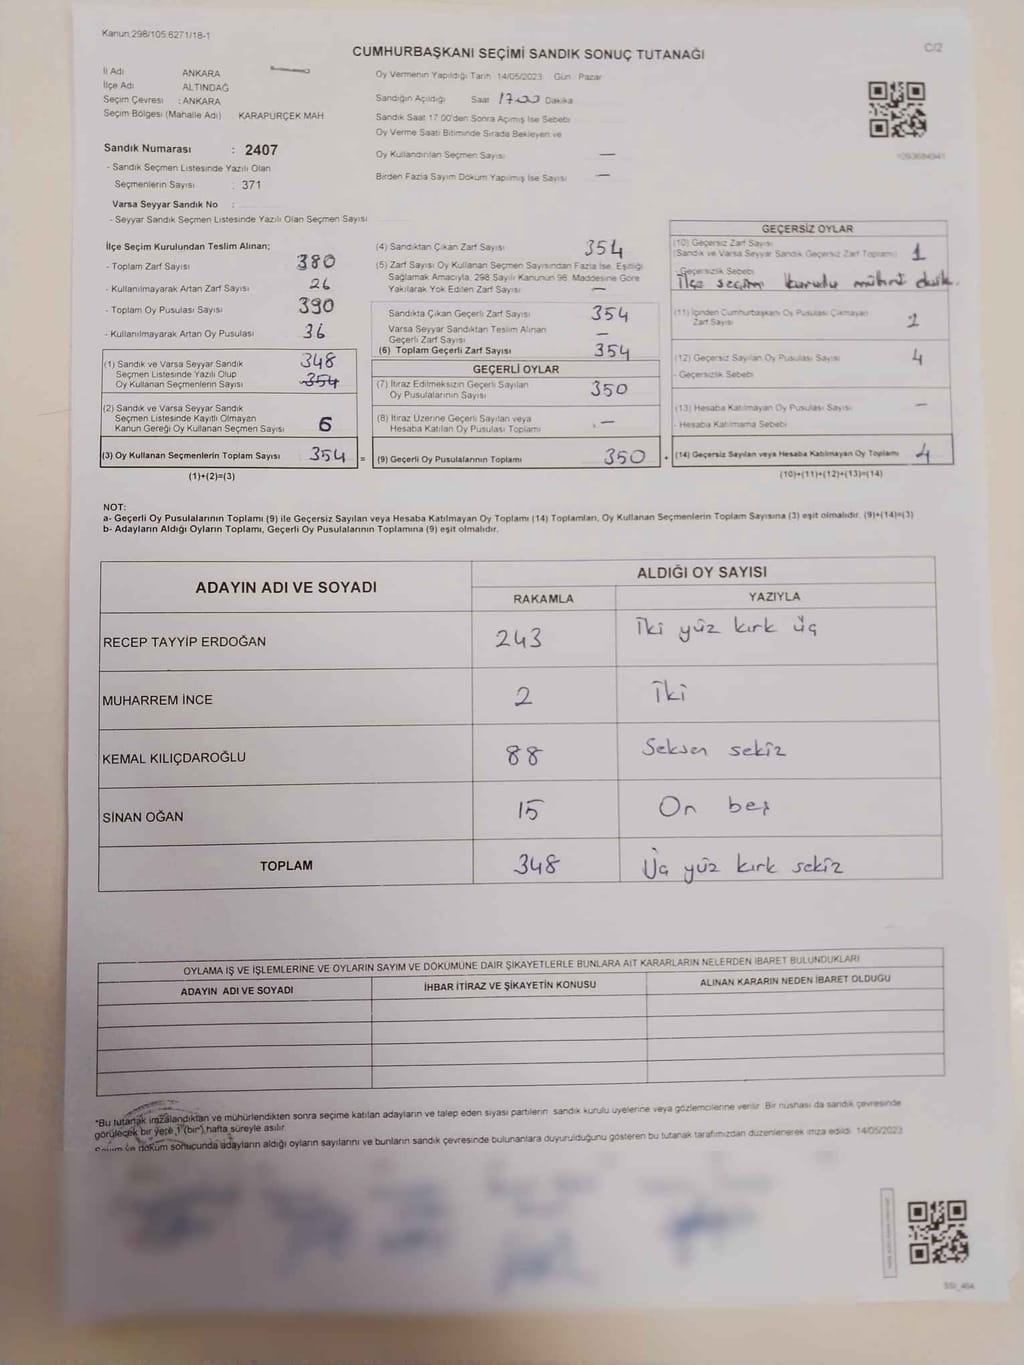 Kanun 298/105 6271/18-1
C/2
CUMHURBAŞKANI SEÇİMİ SANDIK SONUÇ TUTANAĞI
İl Adı ANKARA
İlçe Adı ALTINDAĞ
Seçim Çevresi : ANKARA
Seçim Bölgesi (Mahalle Adı) KARAPÜRÇEK MAH
Sandık Numarası : 2407
- Sandık Seçmen Listesinde Yazılı Olan
Seçmenlerin Sayısı : 371
Varsa Seyyar Sandık No :
- Seyyar Sandık Seçmen Listesinde Yazılı Olan Seçmen Sayısı
Oy Vermenin Yapıldığı Tarih 14/05/2023 Gün Pazar
Sandığın Açıldığı Saat 17:00 Dakika
Sandık Saat 17 00'den Sonra Açımış İse Sebebi
Oy Verme Saati Bitiminde Sırada Bekleyen ve
Oy Kullandırılan Seçmen Sayısı —
Birden Fazla Sayım Döküm Yapılmış İse Sayısı —
1093684941
İlçe Seçim Kurulundan Teslim Alınan;
- Toplam Zarf Sayısı 380
- Kullanılmayarak Artan Zarf Sayısı 26
- Toplam Oy Pusulası Sayısı 390
- Kullanılmayarak Artan Oy Pusulası 36
(1) Sandık ve Varsa Seyyar Sandık 348
Seçmen Listesinde Yazılı Olup
Oy Kullanan Seçmenlerin Sayısı 354
(2) Sandık ve Varsa Seyyar Sandık
Seçmen Listesinde Kayıtlı Olmayan
Kanun Gereği Oy Kullanan Seçmen Sayısı 6
(3) Oy Kullanan Seçmenlerin Toplam Sayısı 354 =
(1)+(2)=(3)
(4) Sandıktan Çıkan Zarf Sayısı 354
(5) Zarf Sayısı Oy Kullanan Seçmen Sayısından Fazla İse, Eşitliği
Sağlamak Amacıyla, 298 Sayılı Kanunun 98. Maddesine Göre
Yakılarak Yok Edilen Zarf Sayısı —
Sandıkta Çıkan Geçerli Zarf Sayısı 354
Varsa Seyyar Sandıktan Teslim Alınan
Geçerli Zarf Sayısı —
(6) Toplam Geçerli Zarf Sayısı 354
GEÇERLİ OYLAR
(7) İtiraz Edilmeksizin Geçerli Sayılan
Oy Pusulalarının Sayısı 350
(8) İtiraz Üzerine Geçerli Sayılan veya
Hesaba Katılan Oy Pusulası Toplamı —
(9) Geçerli Oy Pusulalarının Toplamı 350 +
GEÇERSİZ OYLAR
(10) Geçersiz Zarf Sayısı
(Sandık ve Varsa Seyyar Sandık Geçersiz Zarf Toplamı) 1
- Geçersizlik Sebebi
İlçe seçim kurulu mührü
(11) İçinden Cumhurbaşkanı Oy Pusulası Çıkmayan
Zarf Sayısı
(12) Geçersiz Sayılan Oy Pusulası Sayısı 4
- Geçersizlik Sebebi
(13) Hesaba Katılmayan Oy Pusulası Sayısı —
- Hesaba Katılmama Sebebi
(14) Geçersiz Sayılan veya Hesaba Katılmayan Oy Toplamı 4
(10)+(11)+(12)+(13)=(14)
NOT:
a- Geçerli Oy Pusulalarının Toplamı (9) ile Geçersiz Sayılan veya Hesaba Katılmayan Oy Toplamı (14) Toplamları, Oy Kullanan Seçmenlerin Toplam Sayısına (3) eşit olmalıdır. (9)+(14)=(3)
b- Adayların Aldığı Oyların Toplamı, Geçerli Oy Pusulalarının Toplamına (9) eşit olmalıdır.
ADAYIN ADI VE SOYADI ALDIĞI OY SAYISI
RAKAMLA YAZIYLA
RECEP TAYYİP ERDOĞAN 243 İki yüz kırk üç
MUHARREM İNCE 2 İki
KEMAL KILIÇDAROĞLU 88 Seksen sekiz
SİNAN OĞAN 15 On beş
TOPLAM 348 Üç yüz kırk sekiz
OYLAMA İŞ VE İŞLEMLERİNE VE OYLARIN SAYIM VE DÖKÜMÜNE DAİR ŞİKAYETLERLE BUNLARA AİT KARARLARIN NELERDEN İBARET BULUNDUKLARI
ADAYIN ADI VE SOYADI İHBAR İTİRAZ VE ŞİKAYETİN KONUSU ALINAN KARARIN NEDEN İBARET OLDUĞU
*Bu tutanak imzalandıktan ve mühürlendikten sonra seçime katılan adayların ve talep eden siyasi partilerin sandık kurulu üyelerine veya gözlemcilerine verilir. Bir nüshası da sandık çevresinde
görülecek bir yere 1 (bir) hafta süreyle asılır.
Sayım ve döküm sonucunda adayların aldığı oyların sayılarını ve bunların sandık çevresinde bulunanlara duyurulduğunu gösteren bu tutanak tarafımızdan düzenlenerek imza edildi. 14/05/2023